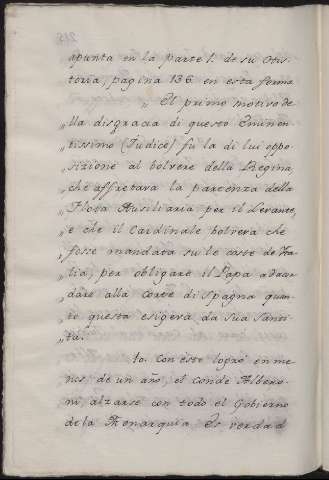 apunta en la parte 1. de su His-
toria, pagina 136 en esta forma
„ Il primo motivo de
„ lla disgracia di questo Eminen-
„ tissimo (Judice) fu la di lui oppo-
„ sizione al bolvere della Regina,
„ che affretava la partenza della
„ Flota Ausiliaria per il Levante,
„ e che il Cardinale bolvera che
„ fosse mandata su le coste de Ita-
„ lia, per obligare il Papa ad acor-
„ dare alla corte di Spagna quan-
„ to questa esigeva da sua Santi-
„ ta.
10. Con esto logró en me-
nos de un año, el conde Albero-
ni, alzarse con todo el Gobierno
de la Monarquía. Es verdad